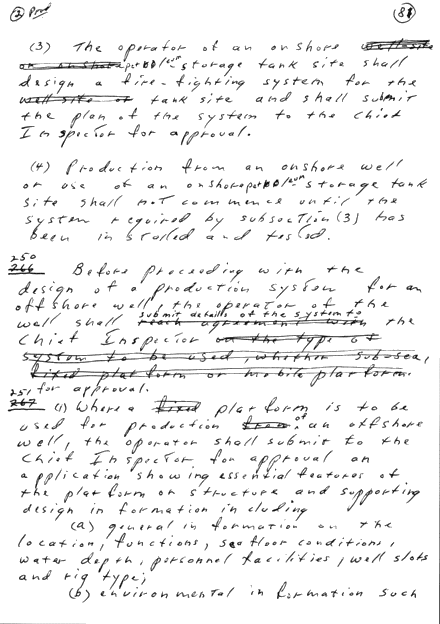 ② Prod
81
(3) The operator of an onshore well site
or onshore petroleum storage tank site shall
design a fire-fighting system for the
well site or tank site and shall submit
the plan of the system to the Chief
Inspector for approval.
(4) Production from an onshore well
or use of an onshore petroleum storage tank
site shall not commence until the
system required by subsection (3) has
been installed and tested.
250
266 Before proceeding with the
design of a production system for an
offshore well, the operator of the
submit details of the system to
well shall reach agreement with the
Chief Inspector on the type of
system to be used, whether sub-sea,
fixed platform or mobile platform.
251 for approval.
267 (1) Where a fixed platform is to be
used for production from of an offshore
well, the operator shall submit to the
Chief Inspector for approval an
application showing essential features of
the platform or structure and supporting
design information including
(a) general information on the
location, functions, sea floor conditions,
water depth, personnel facilities, well slots
and rig type;
(b) environmental information such